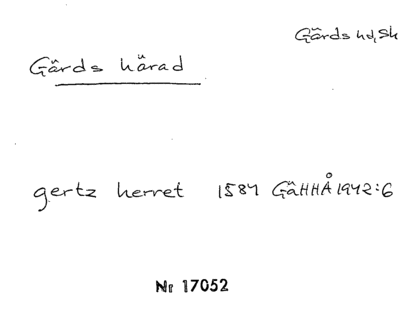 Gärds hd, Sk
Gärds härad
gertz herret 1584 GäHHÅ 1942:6
Nr 17052